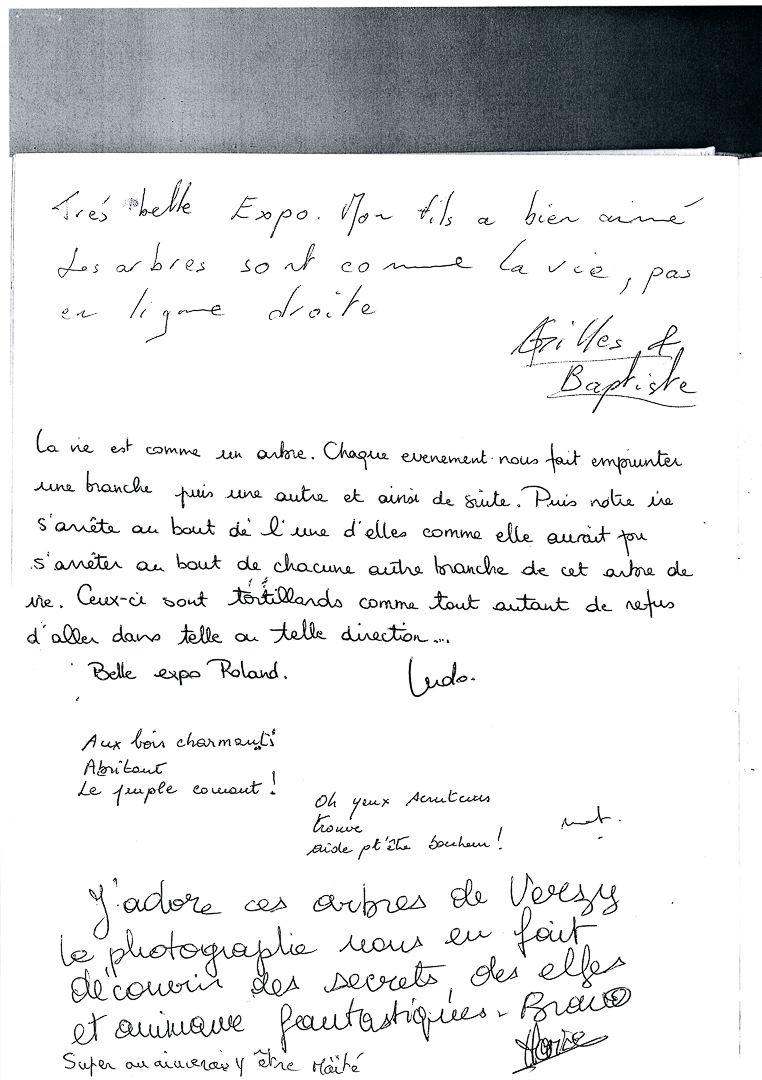 Trés belle Expo. Mon fils a bien aimé
Les arbres sont comme la vie, pas
en ligne droite
Gilles &
Baptiste
La vie est comme un arbre. Chaque evenement nous fait emprunter
une branche puis une autre et ainsi de suite. Puis notre vie
s'arrête au bout de l'une d'elles comme elle aurait pu
s'arrêter au bout de chacune autre branche de cet arbre de
vie. Ceux-ci sont tortillards comme tout autant de refus
d'aller dans telle ou telle direction...
Belle expo Roland. Ludo.
Aux bois charmants
Abritant
Le peuple
Oh yeux scruteurs
trouve
aide pt'être bonheur !
J'adore ces arbres de Verzy
la photographie nous en fait
découvrir des secrets, des elfes
et animaux fantastiques. Bravo
Super on aimerais y être Maïté